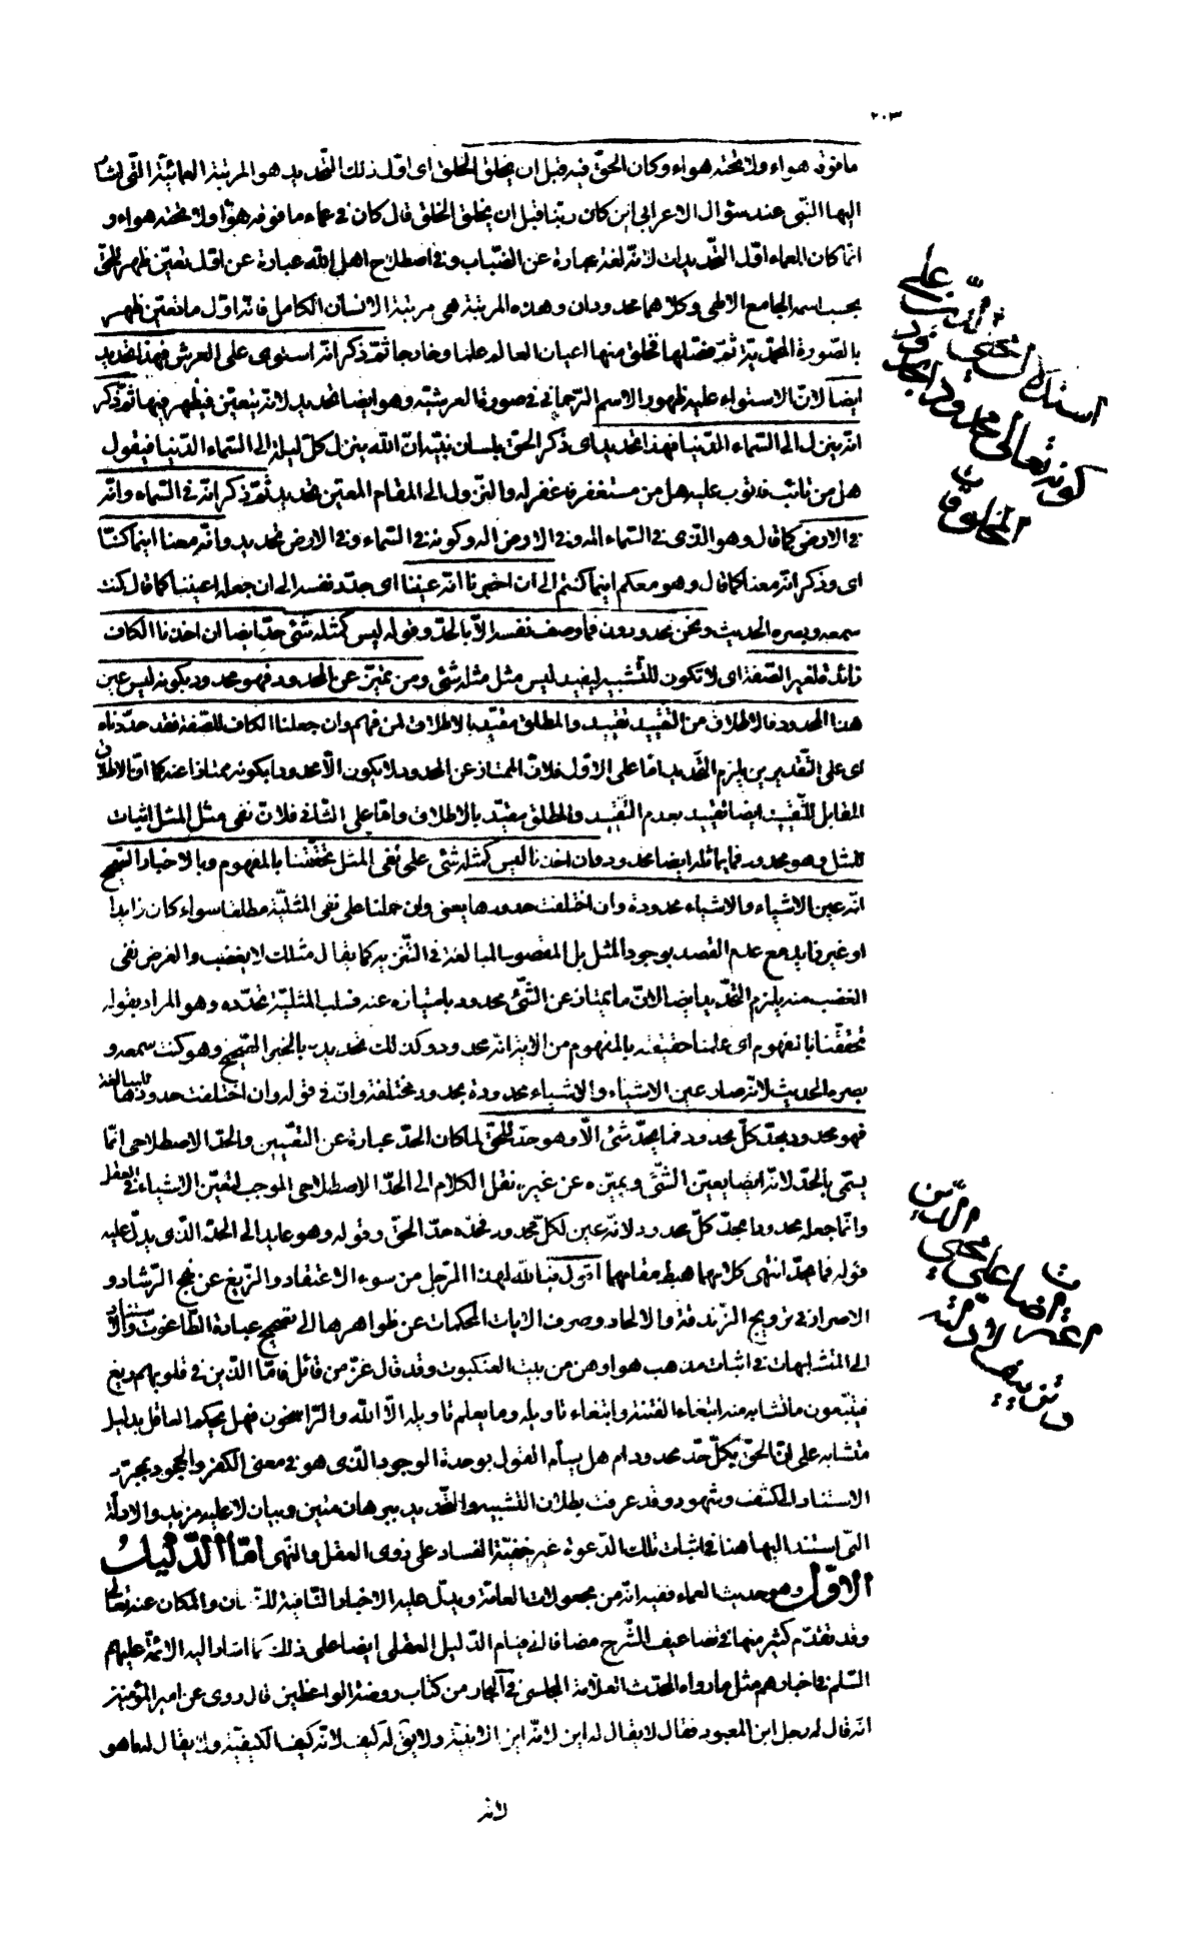 ٢٠٣
ما فوقه هواء ولا تحته هواء وكان الحقّ فيه قبل ان يخلق الخلق اى اوّل ذلك التّحديد هو المرتبة العمائيّة الّتى اشار
اليها النّبى عند سؤال الاعرابى اين كان ربّنا قبل ان يخلق الخلق قال كان فى عماء ما فوقه هواء ولا تحته هواء و
انّما كان العماء اوّل التّحديدات لانّه لغة عبارة عن الضّباب وفى اصطلاح اهل اللّه عبارة عن اوّل تعيّن ظهر الحقّ
بحسب اسمه الجامع الالهى وكلاهما محدودان وهذه المرتبة هى مرتبة الانسان الكامل فانّه اوّل ما تعيّن ظهر
بالصّورة المحمّديّة ثمّ فصّلها فخلق منها اعيان العالم علما وخارجا ثمّ ذكر انّه استوى على العرش فهذا تحديد
ايضا لانّ الاستواء عليه ظهور الاسم الرّحمانى فى صورة العرشيّة وهو ايضا تحديد لانّه يتعيّن فيظهر فيها ثمّ ذكر
انّه ينزل الى السّماء الدّنيا فهذا تحديد اى ذكر الحقّ بلسان نبيّه انّ اللّه ينزل كلّ ليلة الى السّماء الدّنيا فيقول
هل من تائب فاتوب عليه هل من مستغفر فاغفر له والنّزول الى المقام المعيّن تحديد ثمّ ذكر انّه فى السّماء وانّه
فى الارض كما قال وهو الّذى فى السّماء اله وفى الارض اله وكونه فى السّماء وفى الارض تحديد وانّه معنا اينما كنّا
اى وذكر انّه معنا كما قال وهو معكم اينما كنتم الى ان اخبرنا انّه عيننا اى حدّد نفسه الى ان جعله اعيننا كما قال كنت
سمعه وبصره الحديث ونحن محدودون فما وصف نفسه الّا بالحدّ وقوله ليس كمثله شئ حدّ ايضا ان اخذنا الكاف
زائدة لغير الصّفة اى لا تكون للتّشبيه ليفيد ليس مثل مثله شئ ومن تميّز عن المحدود فهو محدود بكونه ليس عين
هذا المحدود فالاطلاق من التّقييد تقييد والمطلق مقيّد بالاطلاق لمن فهم وان جعلنا الكاف للصّفة فقد حدّدناه
اى على التّقديرين يلزم التّحديد امّا على الاوّل فلانّ الممتاز عن المحدود لا يكون الّا محدودا بكونه ممتازا عنه كما انّ الاطلاق
المقابل للتّقييد ايضا تقييد بعدم التّقييد والمطلق مقيّد بالاطلاق وامّا على الثّانى فلانّ نفى مثل المثل اثبات
للمثل وهو محدود فما يماثله ايضا محدود وان اخذنا ليس كمثله شئ على نفى المثل تحقّقنا بالمفهوم وبالاخبار الصّحيح
انّه عين الاشياء والاشياء محدودة وان اختلفت حدودها يعنى وان حملنا على نفى المثليّة مطلقا سواء كان زايدا
او غير زايد مع عدم القصد بوجود المثل بل المقصود المبالغة فى التّنزيه كما يقال مثلك لا يغضب والغرض نفى
الغضب منه يلزم التّحديد ايضا لانّ ما يمتاز عن الشّئ محدود بامتيازه عنه فسلب المثليّة تحدّده وهو المراد بقوله
تحقّقنا بالمفهوم اى علمنا حقيقته بالمفهوم من الاية انّه محدود وكذلك تحديده بالخبر الصّحيح وهو كنت سمعه و
بصره الحديث لانّه صار عين الاشياء والاشياء محدودة بحدود مختلفة وان فى قوله وان اختلفت حدودها للمبالغة
فهو محدود بحدّ كلّ محدود فما يحدّ شئ الّا وهو حدّ للحقّ لما كان الحدّ عبارة عن التّعيين والحدّ الاصطلاحى انّما
يسمّى بالحدّ لانّه ايضا يعيّن الشّئ ويميّزه عن غيره نقل الكلام الى الحدّ الاصطلاحى الموجب لتعيّن الاشياء فى العقل
وانّما جعله محدودا بحدّ كلّ محدود لانّه عين لكلّ محدود فحدّه حدّ الحقّ وقوله وهو عايد الى الحدّ الّذى يدلّ عليه
قوله فما يحدّ انتهى كلامهما هبط مقامهما اقول تبّا للّه لهذا الرّجل من سوء الاعتقاد والزّيغ عن نهج الرّشاد و
الاصرار فى ترويج الزّندقة والالحاد وصرف الايات المحكمات عن ظواهرها الى تصحيح عبادة الطّاغوت والاستناد
الى المتشابهات فى اثبات مذهب هو اوهن من بيت العنكبوت وقد قال عزّ من قائل فامّا الّذين فى قلوبهم زيغ
فيتّبعون ما تشابه منه ابتغاء الفتنة وابتغاء تاويله وما يعلم تاويله الّا اللّه والرّاسخون فهل يحكم العاقل بدليل
متشابه على انّ الحقّ بكلّ حدّ محدود ام هل يسأم القول بوحدة الوجود الّذى هو فى معنى الكفر والجحود بمجرّد
الاستناد الى كشف وشهود وقد عرفت بطلان التّشبيه والتّحديد ببرهان متين وبيان لا عليه مزيد والادلّة
الّتى استند اليها هنا فى اثبات تلك الدّعوة غير خفيّة الفساد على ذوى العقل والنّهى امّا الدّليل
الاوّل وهو حديث العماء ففيه انّه من مجعولات العامّة ويدلّ عليه الاخبار النّافية للاين والمكان عنه تعالى
وقد تقدّم كثير منها فى تضاعيف الشّرح مضافا الى قيام الدّليل العقلى ايضا على ذلك كما اشار اليه الائمّة عليهم
السّلم فى اخبارهم مثل ما رواه المحدّث العلّامة المجلسى فى البحار من كتاب روضة الواعظين قال روى عن امير المؤمنين
انّه قال له رجل اين المعبود فقال لا يقال له اين لانّه ايّن الاينيّة ولا يق له كيف لانّه كيّف الكيفيّة ولا يقال له ما هو
لانّه
استدلال محيى الدّين على
كونه تعالى محدودا بحدود
المخلوقات
اعتراضات على محيى الدّين
وتزييف لادلّته